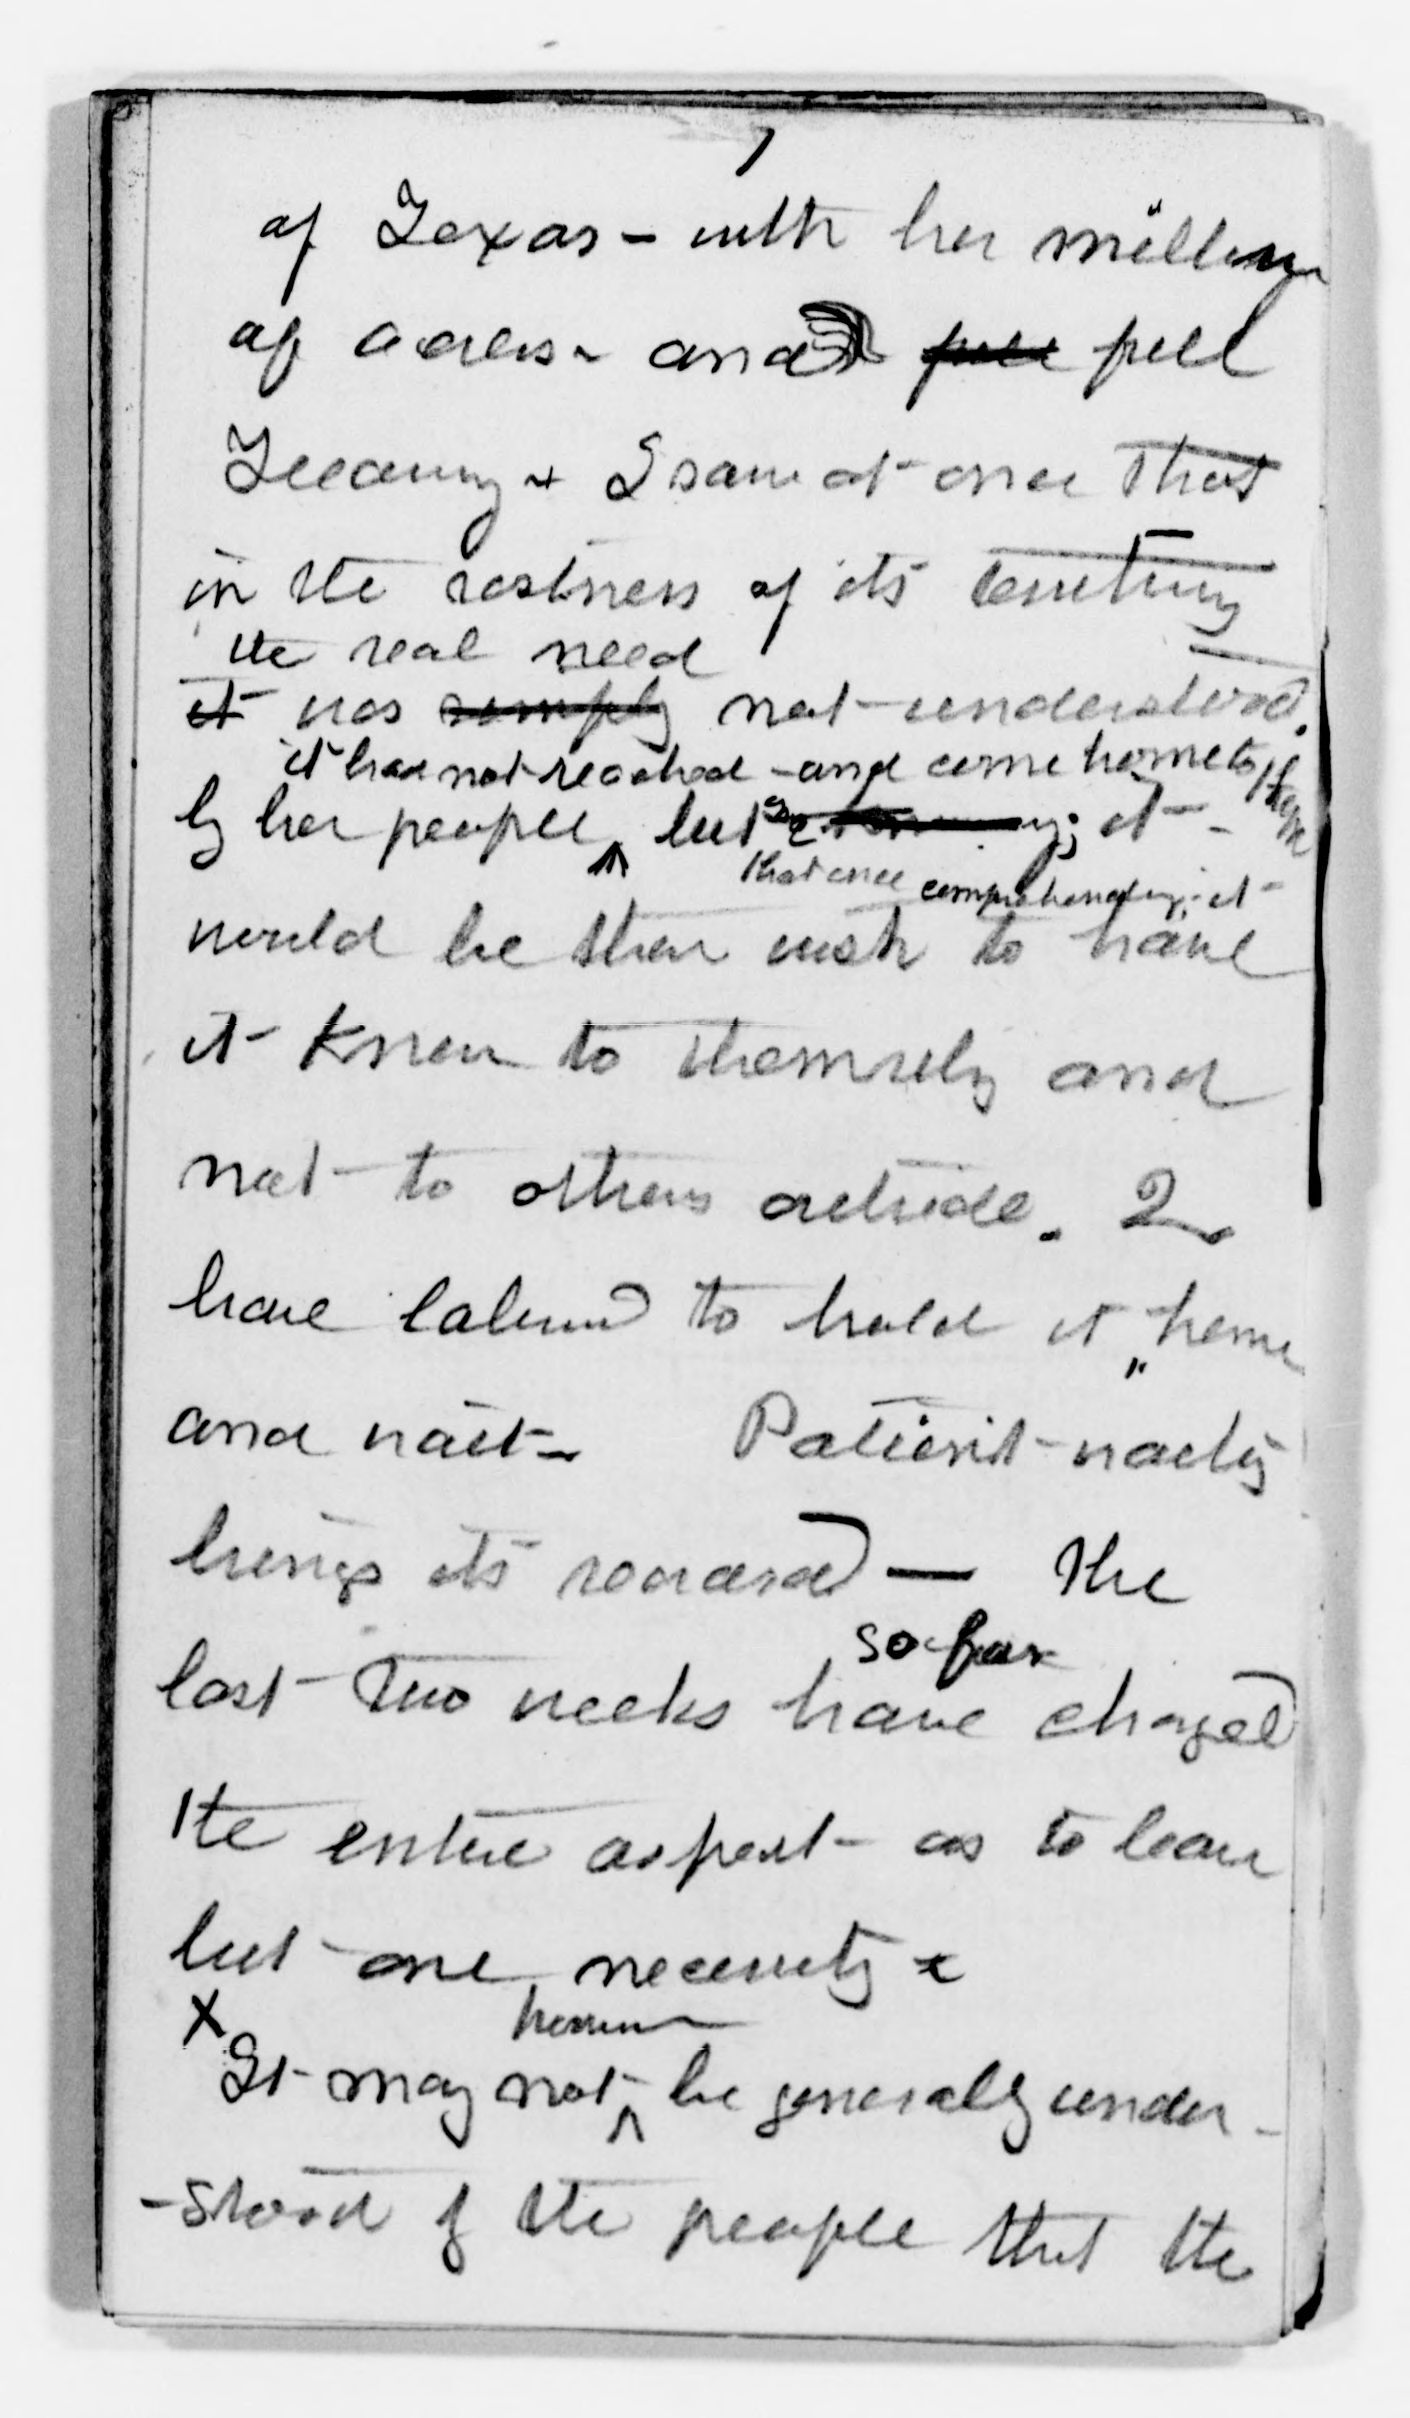 of Texas – with her millions
of acres – and ~~full~~ full
Treasury & I saw at once that
in the vastness of its territory
the real need
~~it~~ was ~~simply~~ not understood.
it had not reached – and come home to them
by her people, but it –
that once comprehending, it
would be their wish to have
it known to themselves and
not to others outside. I
have labored to hold it home
and wait – Patient waiting
brings its reward — The
so far
last two weeks have changed
the entire aspect – as to leave
but one necessity &
X however
It may not be generally under-
-stood of the people that the